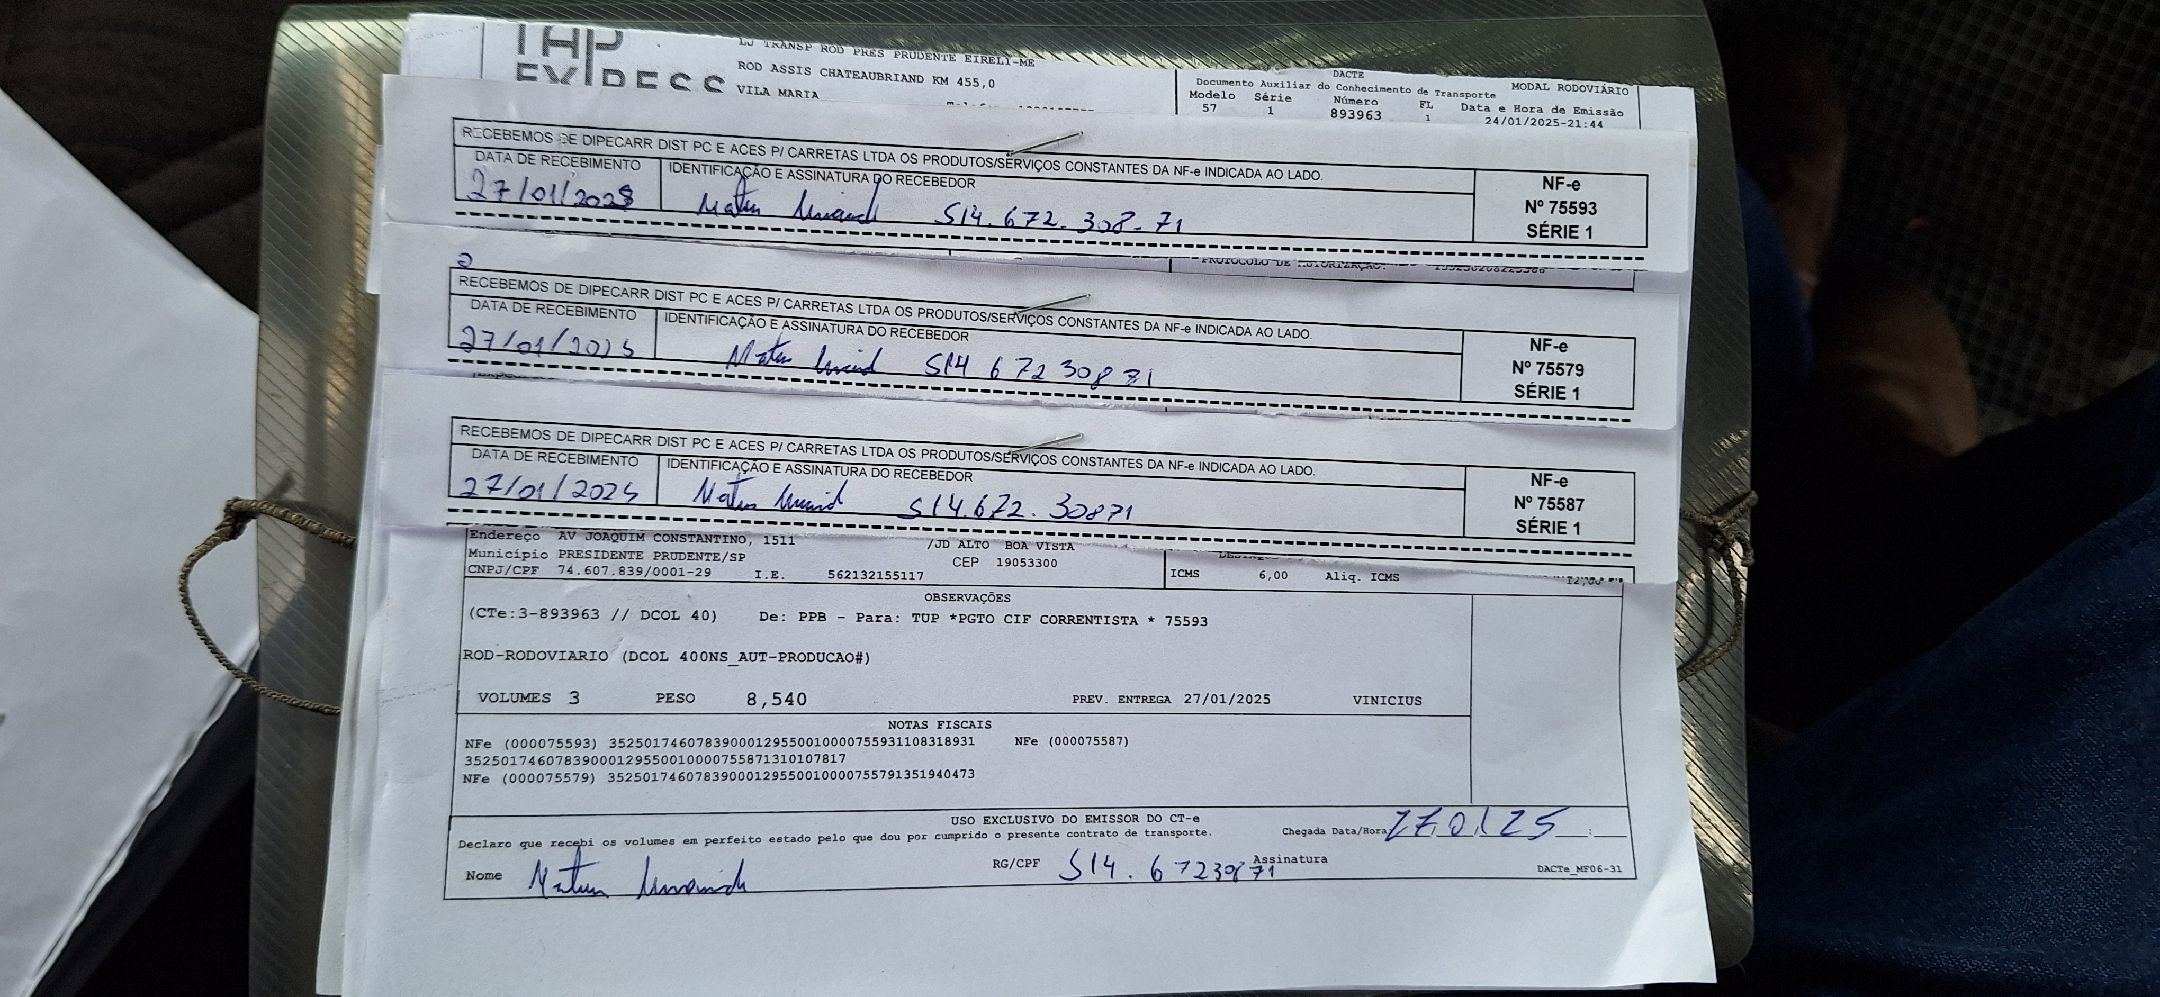 EXPRESS
LJ TRANSP ROD PRES PRUDENTE EIRELI-ME
ROD ASSIS CHATEAUBRIAND KM 455,0
VILA MARIA
DACTE
Documento Auxiliar do Conhecimento de Transporte
MODAL RODOVIÁRIO
Modelo Série Número FL Data e Hora de Emissão
57 1 893963 1 24/01/2025-21:44
RECEBEMOS DE DIPECARR DIST PC E ACES P/ CARRETAS LTDA OS PRODUTOS/SERVIÇOS CONSTANTES DA NF-e INDICADA AO LADO.
DATA DE RECEBIMENTO IDENTIFICAÇÃO E ASSINATURA DO RECEBEDOR
27/01/2025 514.672.308-71
NF-e
Nº 75593
SÉRIE 1
PROTOCOLO DE AUTORIZAÇÃO:
RECEBEMOS DE DIPECARR DIST PC E ACES P/ CARRETAS LTDA OS PRODUTOS/SERVIÇOS CONSTANTES DA NF-e INDICADA AO LADO.
DATA DE RECEBIMENTO IDENTIFICAÇÃO E ASSINATURA DO RECEBEDOR
27/01/2025 514 672 308 71
NF-e
Nº 75579
SÉRIE 1
RECEBEMOS DE DIPECARR DIST PC E ACES P/ CARRETAS LTDA OS PRODUTOS/SERVIÇOS CONSTANTES DA NF-e INDICADA AO LADO.
DATA DE RECEBIMENTO IDENTIFICAÇÃO E ASSINATURA DO RECEBEDOR
27/01/2025 514.672.30871
NF-e
Nº 75587
SÉRIE 1
Endereço AV JOAQUIM CONSTANTINO, 1511 /JD ALTO BOA VISTA
Município PRESIDENTE PRUDENTE/SP CEP 19053300
CNPJ/CPF 74.607.839/0001-29 I.E. 562132155117
ICMS 6,00 Aliq. ICMS
OBSERVAÇÕES
(CTe:3-893963 // DCOL 40) De: PPB - Para: TUP *PGTO CIF CORRENTISTA * 75593
ROD-RODOVIARIO (DCOL 400NS_AUT-PRODUCAO#)
VOLUMES 3 PESO 8,540 PREV. ENTREGA 27/01/2025 VINICIUS
NOTAS FISCAIS
NFe (000075593) 35250174607839000129550010000755931108318931 NFe (000075587)
35250174607839000129550010000755871310107817
NFe (000075579) 35250174607839000129550010000755791351940473
USO EXCLUSIVO DO EMISSOR DO CT-e
Declaro que recebi os volumes em perfeito estado pelo que dou por cumprido o presente contrato de transporte. Chegada Data/Hora 27.01.25 :
Nome RG/CPF 514.67230871 Assinatura
DACTe_MF06-31